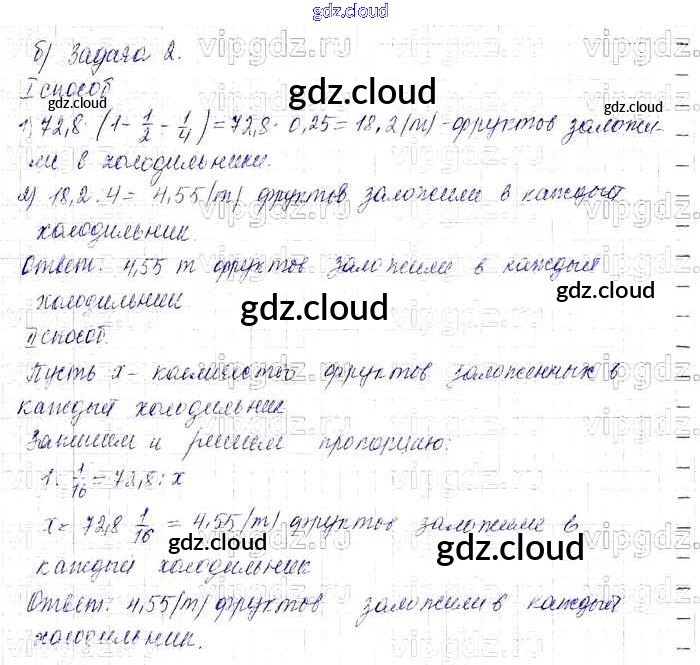 gdz.cloud
б) Задача 2.
I способ
gdz.cloud
1) 72,8 · (1 - 1/2 - 1/4) = 72,8 · 0,25 = 18,2 (т) - фруктов заложи-
ли в холодильники.
2) 18,2 : 4 = 4,55 (т) фруктов заложили в каждый
холодильник.
Ответ: 4,55 т фруктов заложили в каждый
холодильник.
gdz.cloud
gdz.cloud
II способ.
Пусть x - количество фруктов заложенных в
каждый холодильник
Запишем и решим пропорцию:
1 : 1/16 = 72,8 : x
x = 72,8 · 1/16 = 4,55 (т) фруктов заложили в
gdz.cloud
gdz.cloud
каждый холодильник
Ответ: 4,55 (т) фруктов заложили в каждый
холодильник.